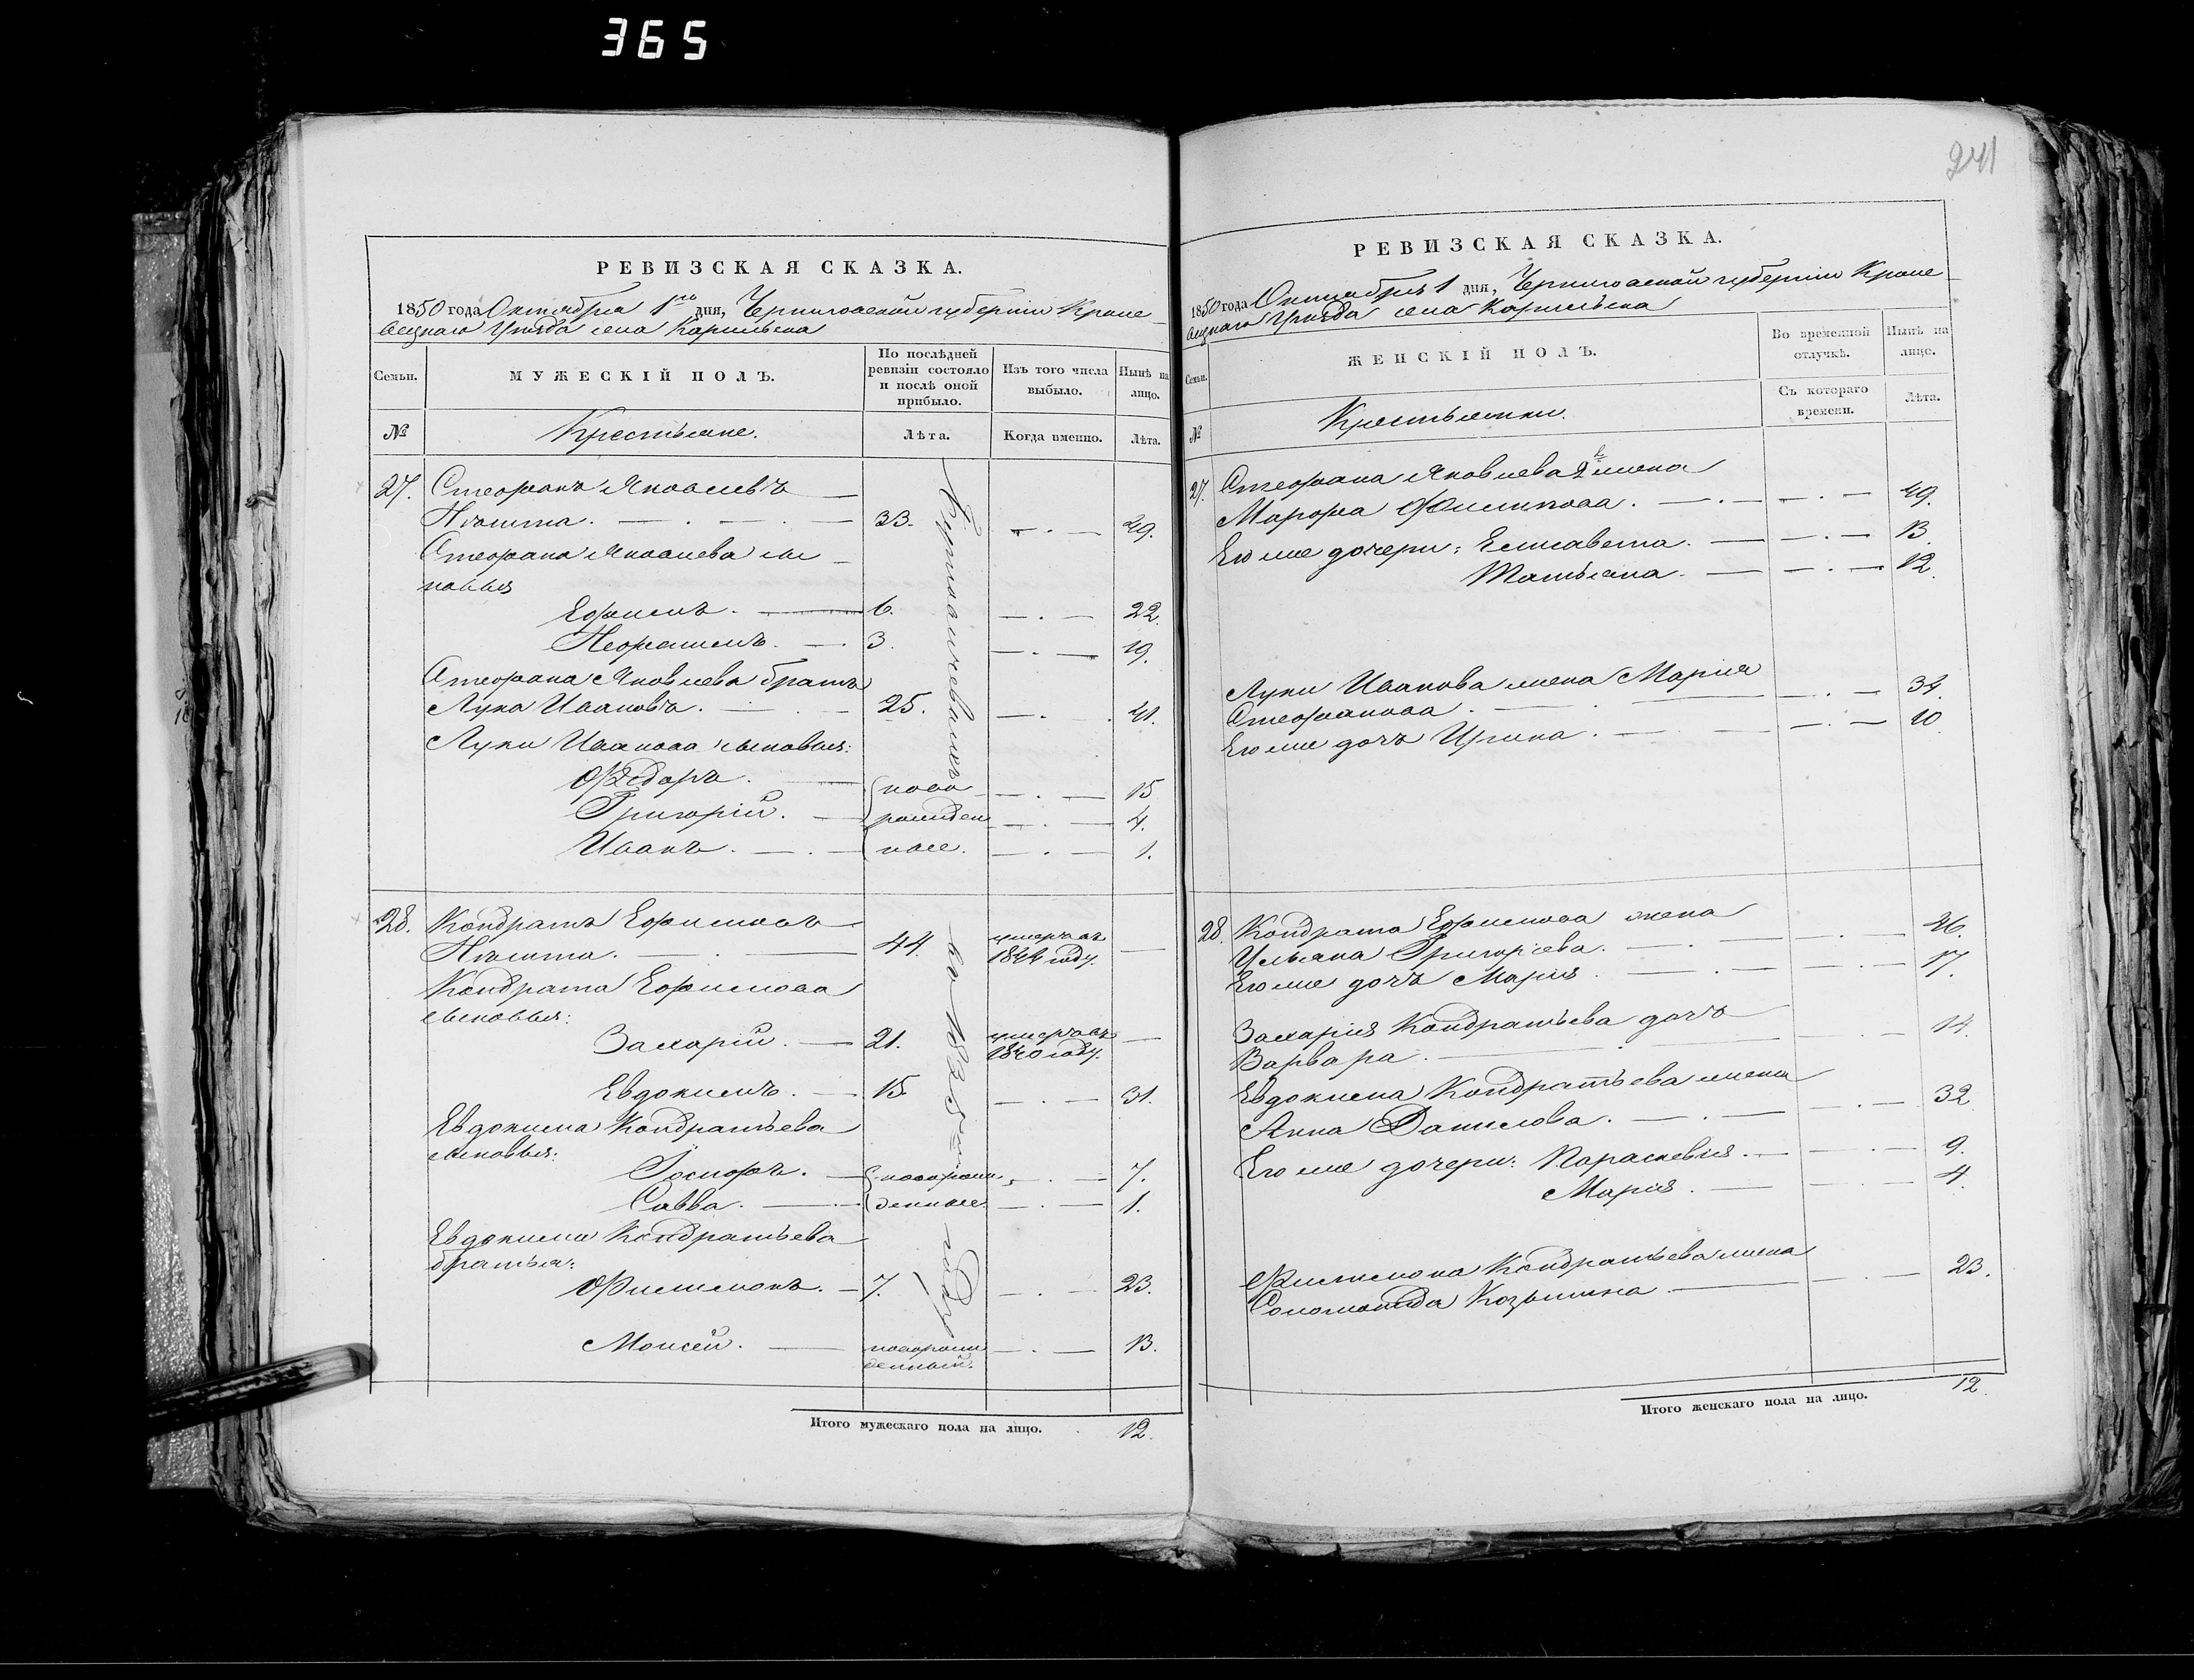 365
241
РЕВИЗСКАЯ СКАЗКА.
1850 года Октября 1го дня, Черниговской губерніи Кроле
вецкаго Уѣзда села Карильска
Семьи.
МУЖЕСКІЙ ПОЛЪ.
По послѣдней ревизіи состояло и послѣ оной прибыло.
Изъ того числа выбыло.
Нынѣ на лицо.
№
Крестьяне.
Лѣта.
Когда именно.
Лѣта.
27. Стефанъ Яковлевъ
33. 49.
Стефана Яковлева сы
новья
Ефимъ. 6. 22.
3. 19.
Стефана Яковлева братъ
Лука Ивановъ. 25. 41.
Луки Иванова сыновья:
Ѳедоръ. ново 15
Григорій. рожден 4.
Иванъ. ные. 1.
28. Кондратъ Ефимовъ
44. умеръ въ
1844 году.
Кондрата Ефимова
сыновья:
Захарій. 21. умеръ въ
1840 году.
Евдокимъ. 15. 31.
Евдокима Кондратьева
сыновья:
Іосифъ. новорож 7.
Савва. денные. 1.
Евдокима Кондратьева
братья:
Филимонъ. 7. 23.
Моисей. новорож 13.
денный.
въ 1835 году
Итого мужескаго пола на лицо. 12.
РЕВИЗСКАЯ СКАЗКА.
1850 года Октября 1 дня, Черниговской губерніи Кроле
вецкаго Уѣзда села Карильска
Семьи.
ЖЕНСКІЙ ПОЛЪ.
Во временной отлучкѣ.
Нынѣ на лицо.
№
Крестьянки.
Съ котораго времени.
Лѣта.
27. Стефана Яковлева 2я жена
Марфа Филипова. 49.
Его же дочери: Елисавета. 13.
Татьяна. 12.
Луки Иванова жена Марія
Стефанова. 34.
Его же дочь Ирина. 10
28. Кондрата Ефимова жена
Ульяна Григоріева. 46.
Его же дочь Марія. 17.
Захарія Кондратьева дочь
Варвара. 14.
Евдокима Кондратьева жена
Анна Данилова. 32
Его же дочери: Параскевія. 9.
Марія. 4.
Филимона Кондратьева жена
Соломонида Козьмина 23.
Итого женскаго пола на лицо. 12.